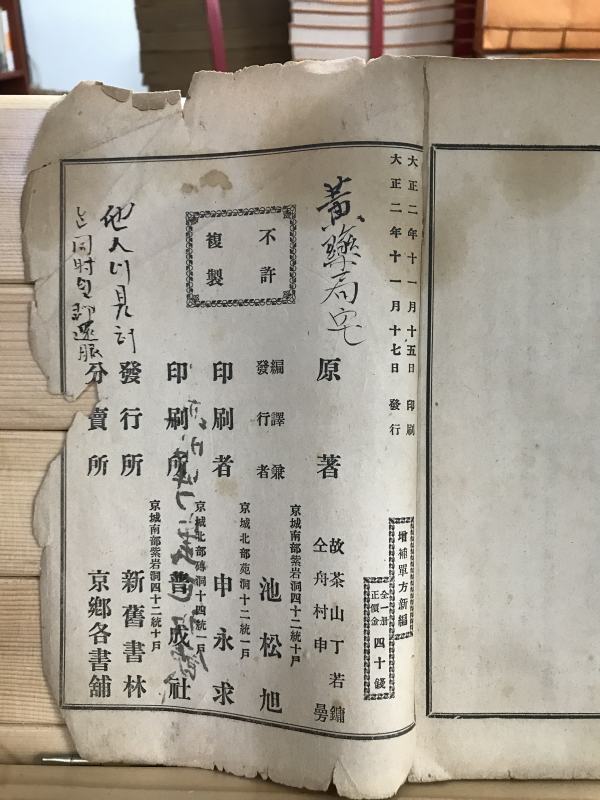 大正二年十一月十五日 印刷
大正二年十一月十七日 發行
增補單方新編
全一册
正價金 四十錢
黃藥局宅
不許
複製
原著
故茶山丁若鏞
仝舟村申曼
編譯兼
發行者
京城南部紫岩洞四十二統十戶
池松旭
印刷者
京城北部苑洞十二統一戶
申永求
印刷所
京城北部磚洞十四統一戶
普成社
發行所
京城南部紫岩洞四十二統十戶
新舊書林
分賣所
京鄉各書舖
他人이見하
同時